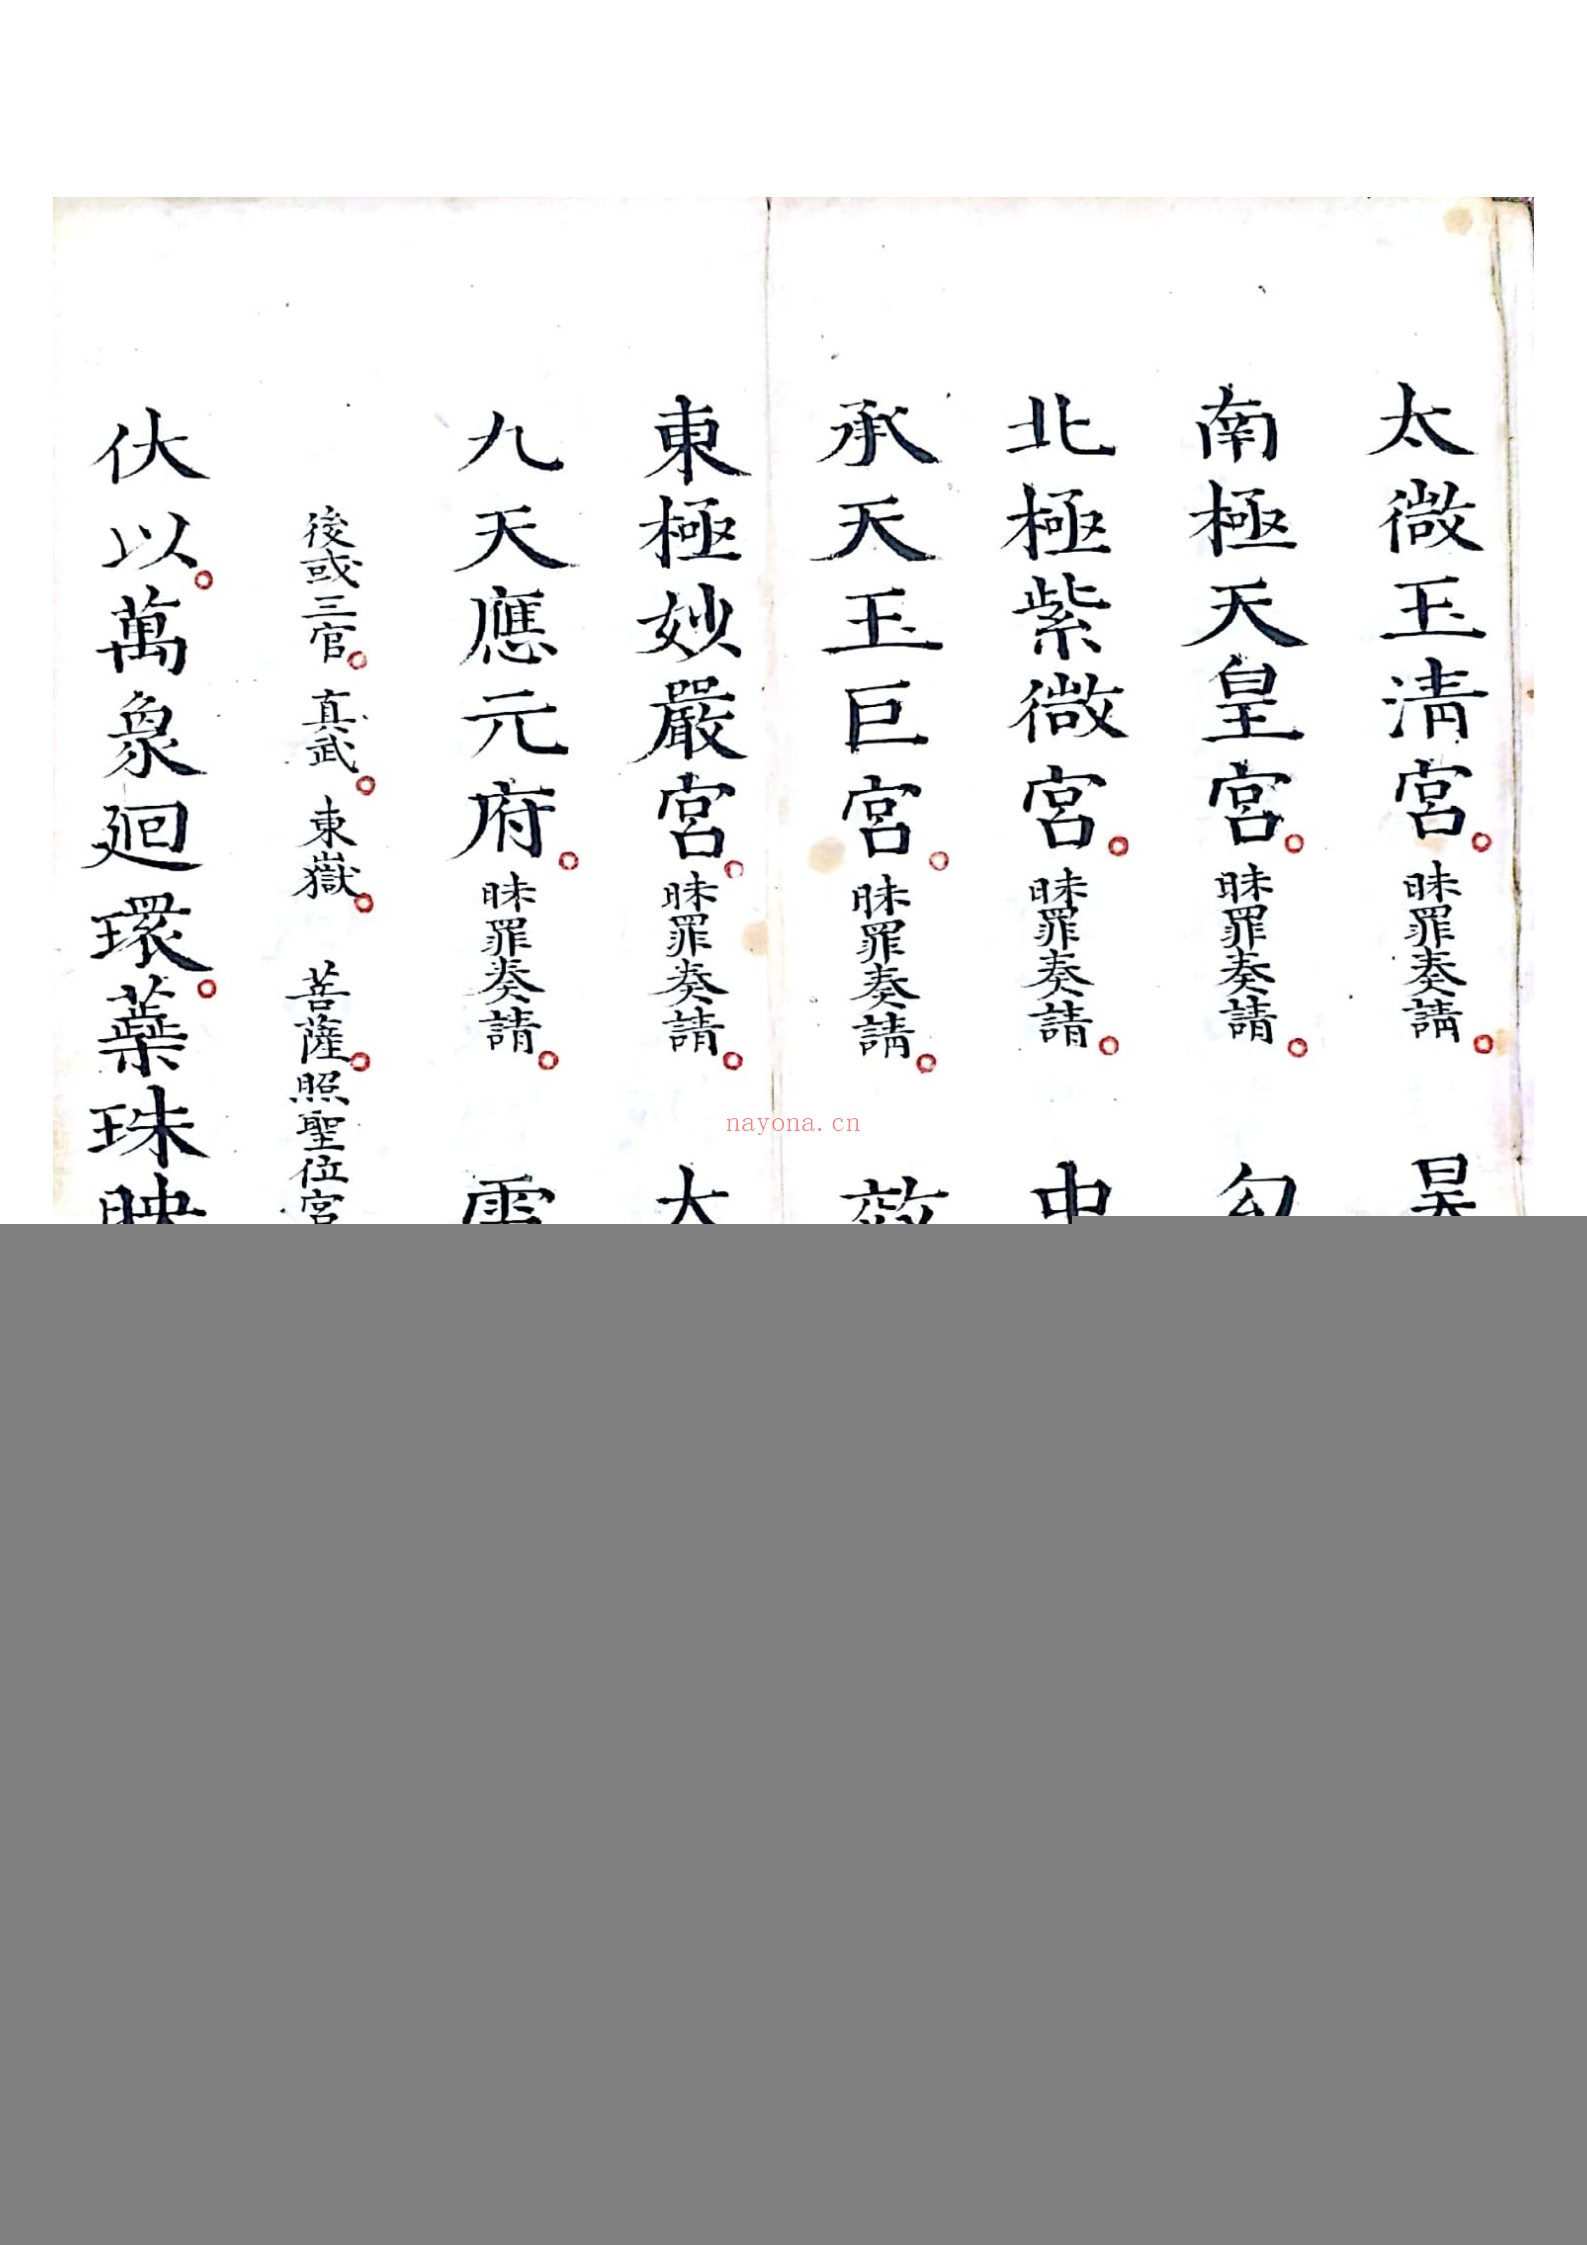 太微玉清宮。昧罪奏請。昊
南極天皇宮。昧罪奏請。勾
北極紫微宮。昧罪奏請。中
承天玉巨宮。昧罪奏請。
東極妙嚴宮。昧罪奏請。大
九天應元府。昧罪奏請。雷
後或三官。真武。東嶽。菩薩。照聖位宮
伏以。萬象迴環。蕋珠映
nayona.cn